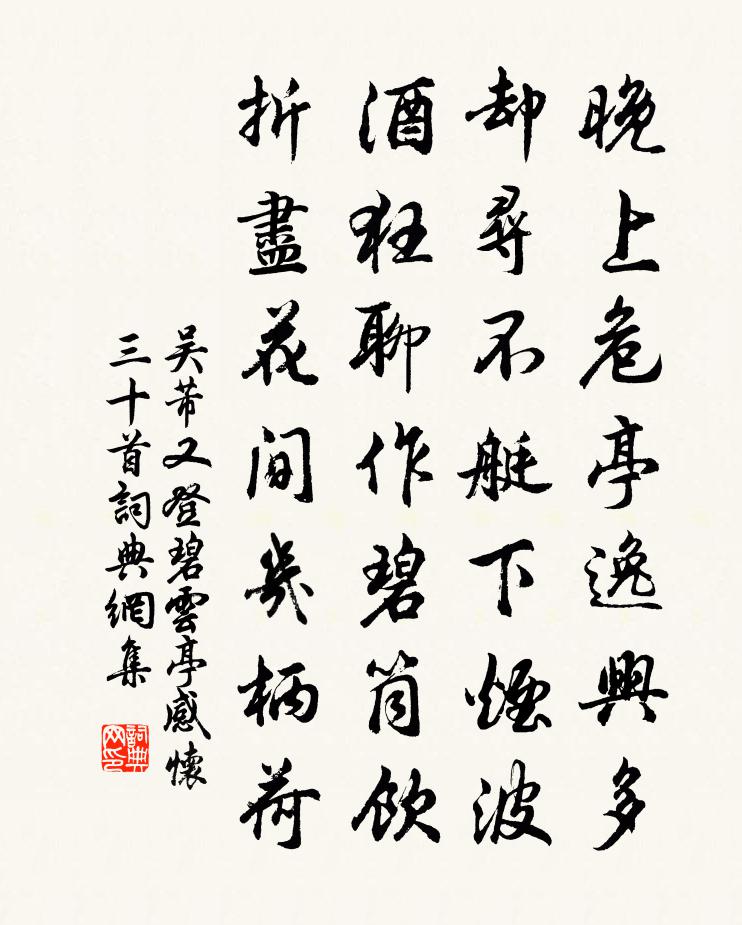 晚上危亭逸興多
却尋不艇下煙波
酒狂聊作碧筒飲
折盡花間幾柄荷
吴芾又登碧雲亭感懷
三十首詞典網集
詞典网印